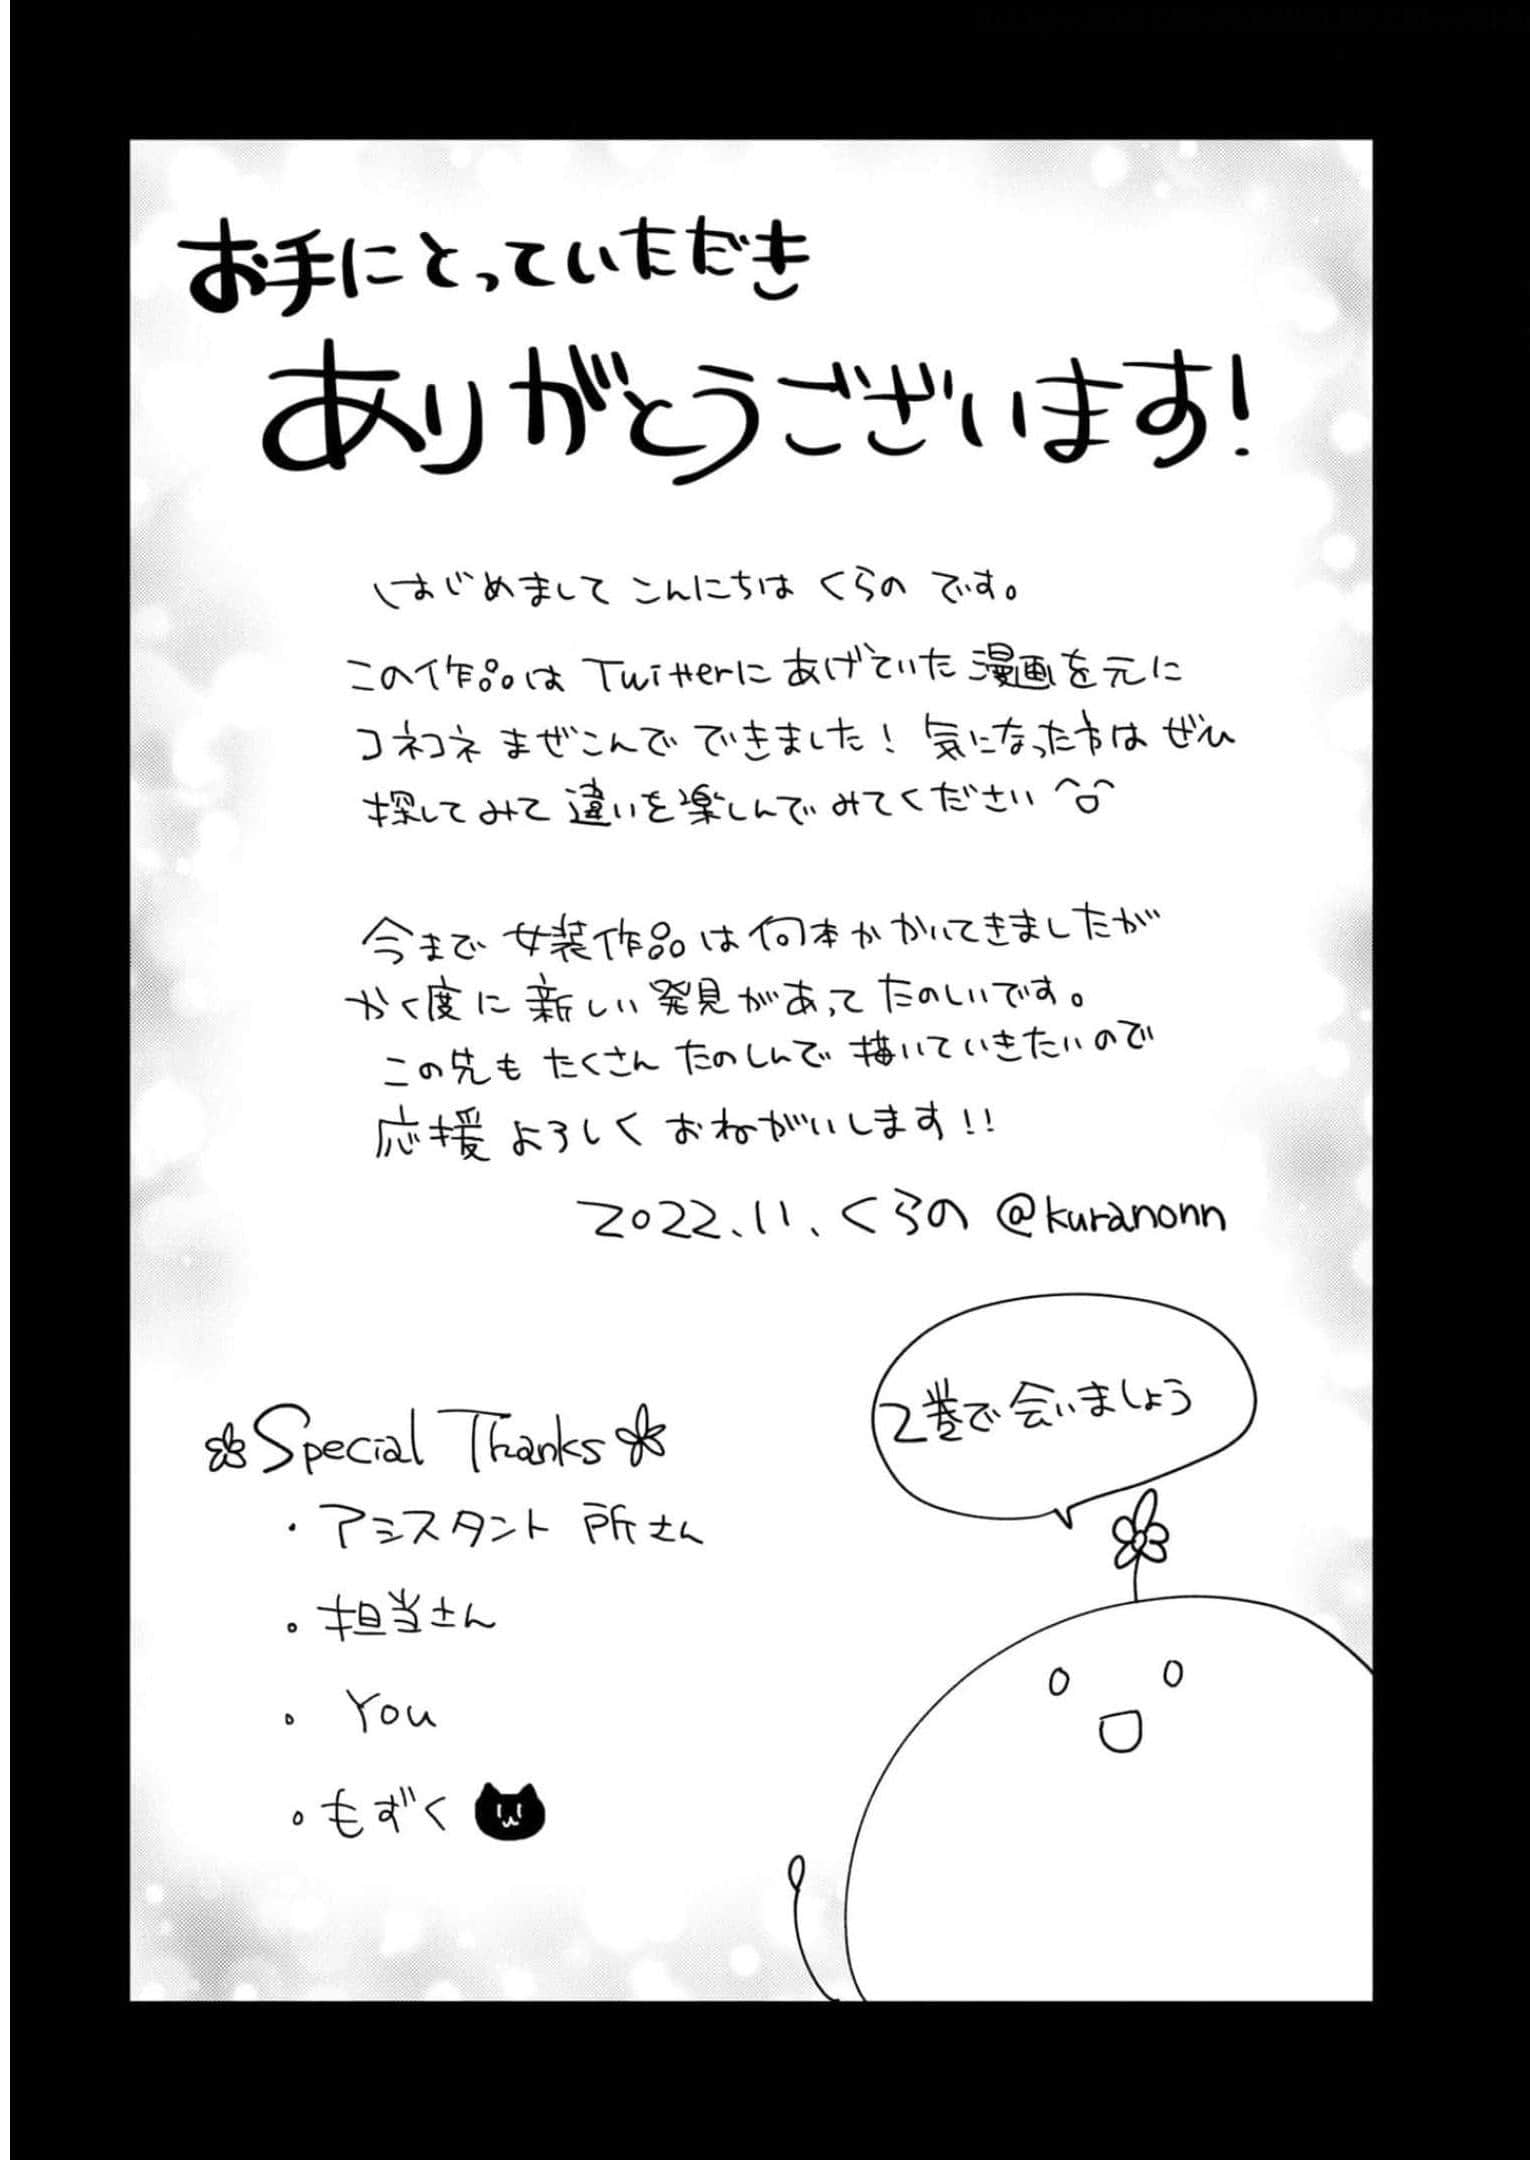 お手にとっていただき
ありがとうございます!
はじめまして こんにちは くらの です。
この作品は Twitterに あげていた 漫画を元に
コネコネ まぜこんで できました! 気になった方は ぜひ
探してみて 違いを楽しんで みてください ^o^
今まで 女装作品は何本か かいてきましたが
かく度に 新しい 発見があって たのしいです。
この先も たくさん たのしんで 描いていきたいので
応援 よろしく おねがいします!!
2022.11.くらの @kuranonn
2巻で会いましょう
Special Thanks
・アシスタント 所さん
・担当さん
・You
・もずく